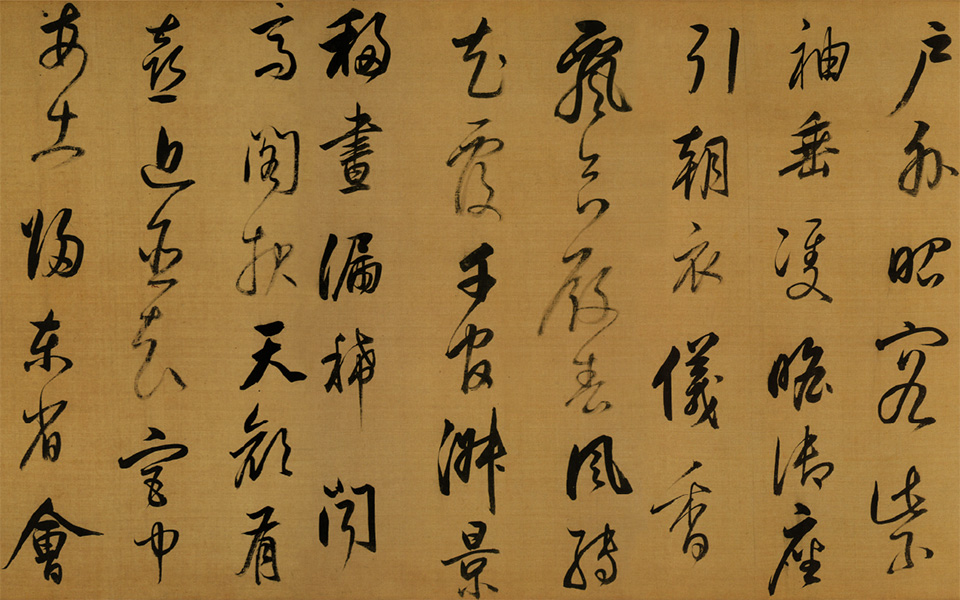 戶外昭容紫
袖垂雙瞻御座
引朝衣儀香
飄合殿春風轉
花覆千官淑景
移晝漏稀聞
高閣報天顏有
喜近臣知宮中
每出歸東省會